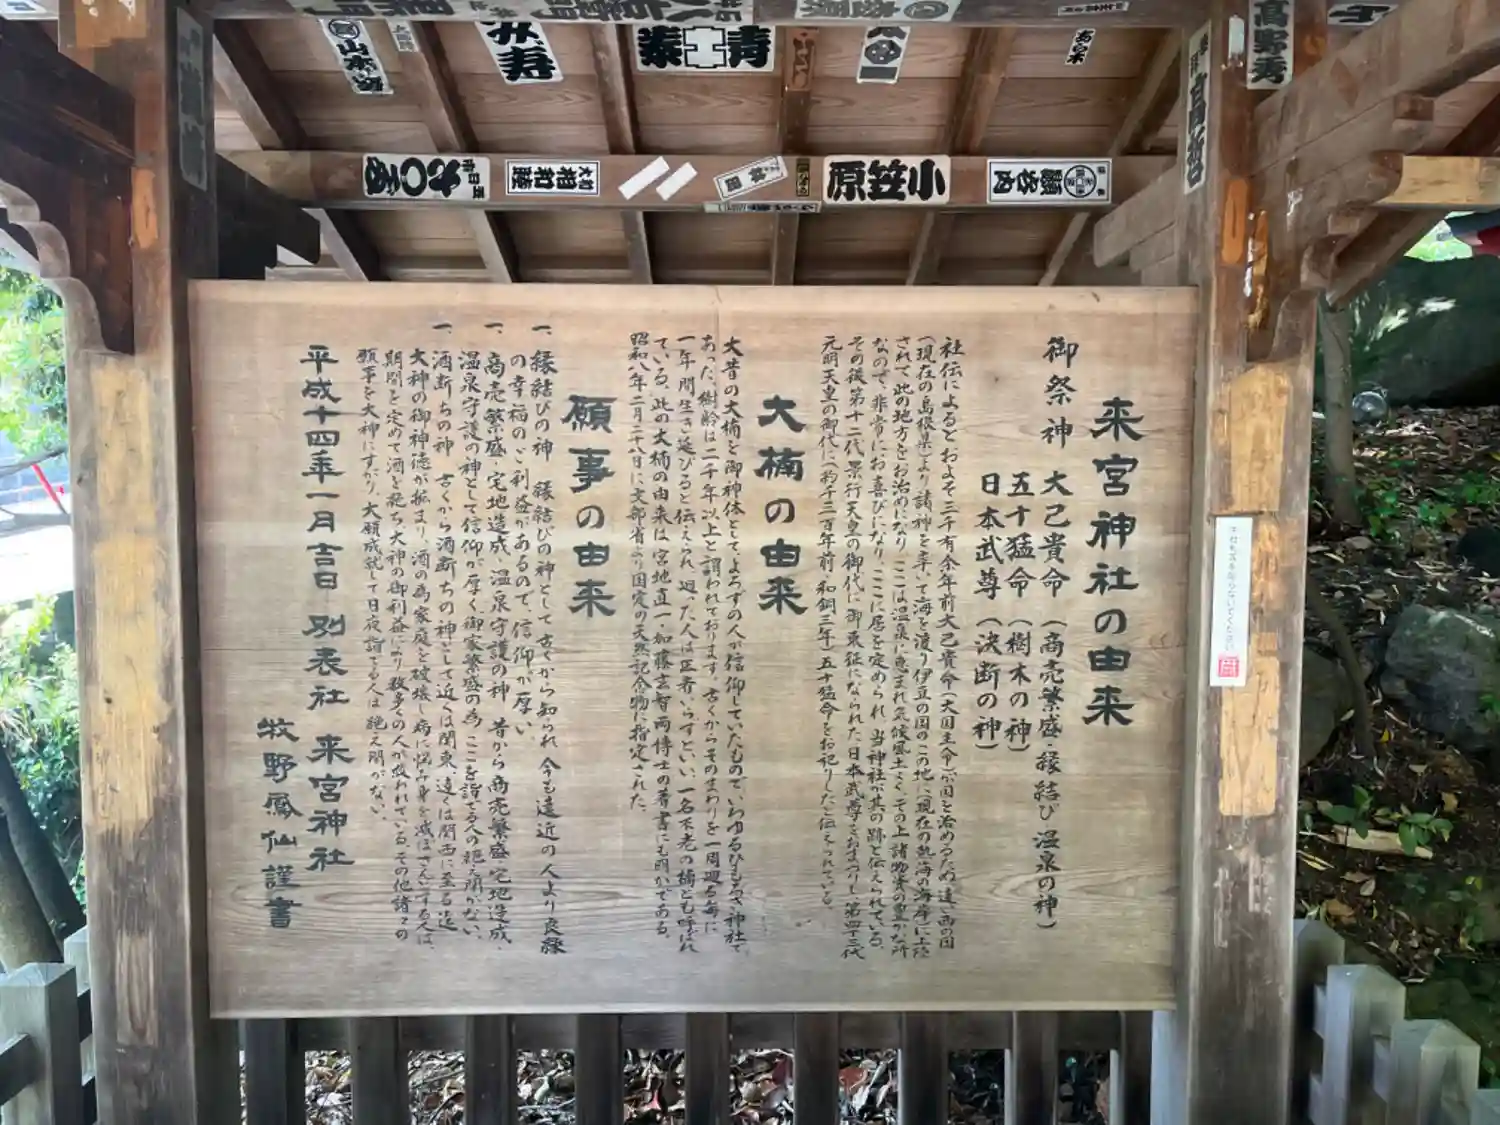 来宮神社の由来
御祭神 大己貴命（商売繁盛・縁結び 温泉の神）
五十猛命（樹木の神）
日本武尊（決断の神）
社伝によるとおよそ三千有余年前大己貴命（大国主命）が国を治めるため、遠い西の国
（現在の島根県）より諸神を率いて海を渡り伊豆の国のこの地（現在の熱海の海岸）に上陸
されて此の地方をお治めになり、ここは温泉に恵まれ気候風土よく、その上諸物資の豊かな所
なので、非常にお喜びになり、ここに居を定められ、当神社が其の跡と伝えられている。
その後第十二代、景行天皇の御代に御東征になられた日本武尊をおまつりし第四十三代
元明天皇の御代に（約千三百年前・和銅三年）五十猛命をお祀りしたと伝えられている。
大楠の由来
大昔の大楠を御神体としてよろずの人が信仰していたもので、いわゆるひもろぎ神社で
あった。樹齢は二千年以上と謂われております。古くからそのまわりを一周廻る毎に
一年間生き延びると伝えられ、廻った人は医者いらずといい、一名不老の楠とも呼ばれ
ている。此の大楠の由来は、宮地直一・加藤玄智両博士の著書にも明かである。
昭和八年二月二十八日に文部省より国定の天然記念物に指定された。
願事の由来
一、縁結びの神 縁結びの神として古くから知られ、今も遠近の人より良縁
の幸福のご利益があるので、信仰が厚い。
一、商売繁盛・宅地造成、温泉守護の神 昔から商売繁盛・宅地造成、
温泉守護の神として信仰が厚く、御家繁盛の為、ここを詣でる人の絶え間がない。
一、酒断ちの神 古くから酒断ちの神として近くは関東、遠くは関西に至る迄
大神の御神徳が拡まり、酒の為家庭を破壊し病に悩み身を滅ぼさんとする人は、
期間を定めて酒を絶ち大神の御利益により数多くの人が救われている。その他諸々の
願事を大神にすがり、大願成就して日夜詣でる人は絶え間がない。
平成十四年一月吉日 別表社 来宮神社
牧野鳳仙謹書
小笠原
大村 相和睦
髙野秀
青山泰